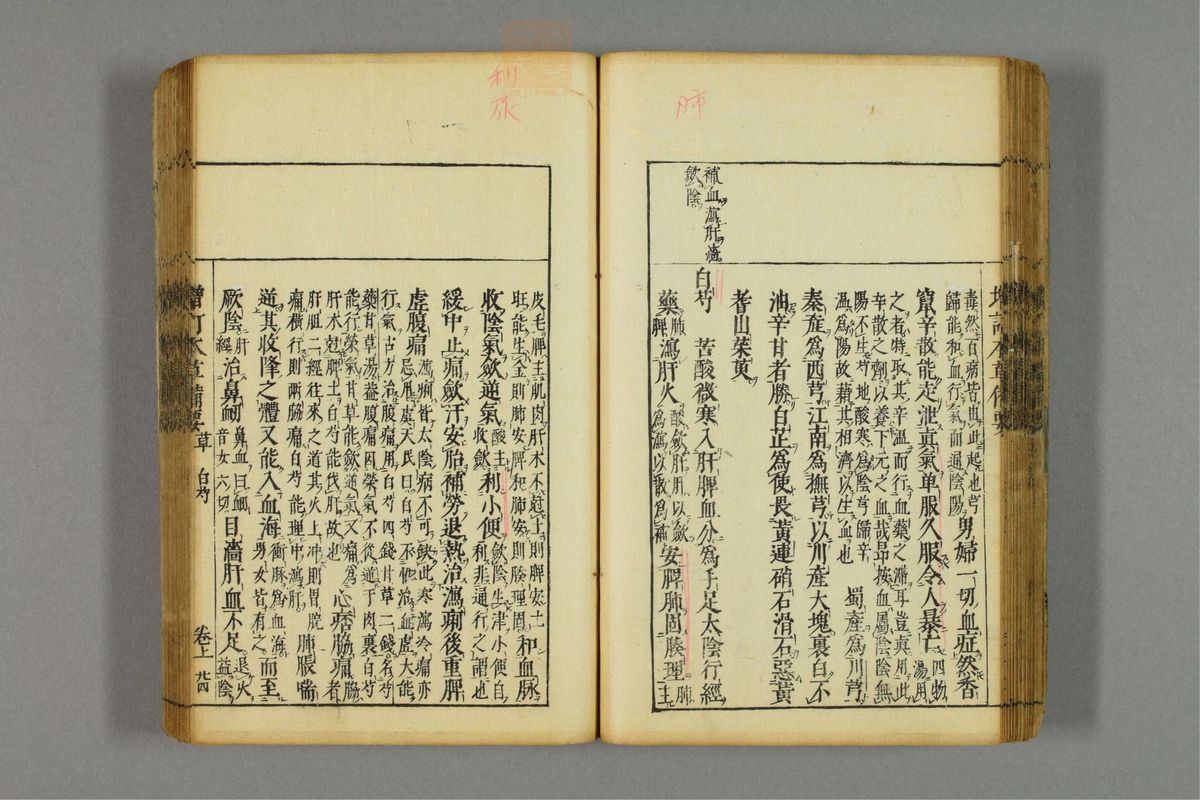 肺
補血瀉肝濇
歛陰
毒然百病皆由此起也芎
歸能和血行氣而通陰陽
男婦一切血症然香
竄辛散能走泄真氣单服久服令人暴亡
四物
湯用
之者特取其辛温而行血藥之滯耳豈真用此
辛散之劑以養下元之血哉昂按血屬陰陰無
陽不生芍地酸寒爲陰芎歸辛
温爲陽故藉其相濟以生血也
蜀產爲川芎
秦產爲西芎江南爲撫芎以川產大塊裏白不
油辛甘者勝白芷爲使畏黃連硝石滑石惡黃
耆山茱萸
白芍
苦酸微寒入肝脾血分爲手足太陰行經
藥
肺
脾
瀉肝火
酸歛肝肝以歛
爲瀉以散爲補
安脾肺固腠理
肺
主
利
皮毛脾主肌肉肝木不尅土則脾安土
旺能生金則肺安脾和肺安則腠理固
和血脉
收陰氣歛逆氣
酸主
收歛
利小便
歛陰生津小便自
利非通行之謂也
緩中止痛歛汗安胎補勞退熱治瀉痢後重脾
虛腹痛
瀉痢皆太陰病不可缺此寒瀉冷痛
忌用虞天氏曰白芍不惟治血虛大能
行氣古方治腹痛用白芍四錢甘草二錢名芍
藥甘草湯葢腹痛因榮氣不從逆于肉裏白芍
能行榮氣甘草能歛逆氣又痛爲
肝木尅脾土白芍能伐肝故也
心痞脇痛
脇者
肝胆二經往來之道其火上冲則胃脘
痛橫行則兩脇痛白芍能理中瀉肝
肺脹喘
逆其收降之體又能入血海
衝脉爲血海
男女皆有之
而至
厥陰
肝
經
治鼻衂
鼻血曰衂
音女六切
目濇肝血不足
退火
益陰
增訂本草備要
草
白芍
卷上
廿四